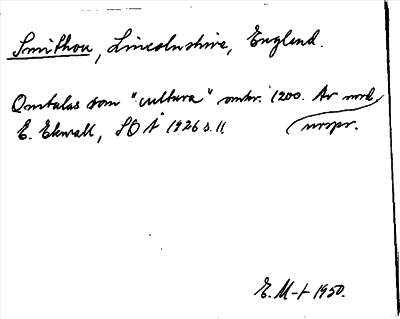 Smithou, Lincolnshire, England.
Omtalas som "cultura" omkr. 1200. Av nord.
urspr.
E. Ekwall, SOÅ 1926 s. 11
E. M-t 1950.